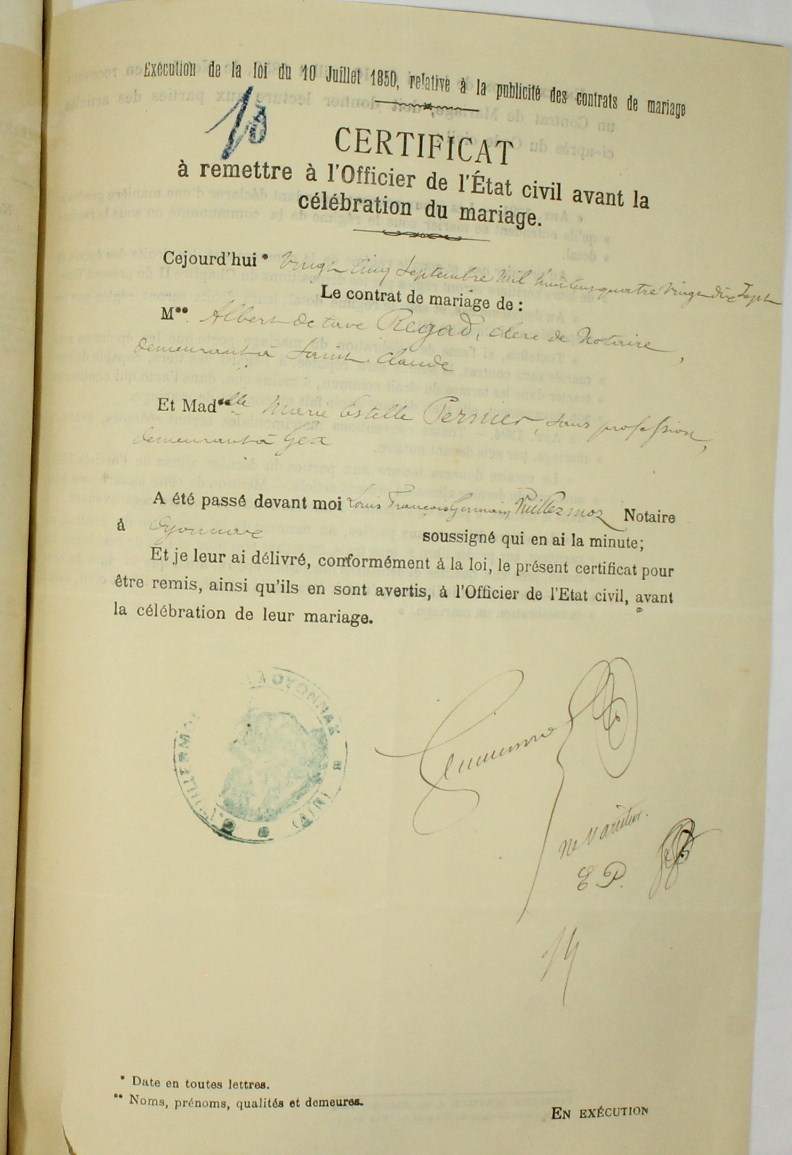 Exécution de la loi du 10 Juillet 1850, relative à la publicité des contrats de mariage
CERTIFICAT
à remettre à l'Officier de l'État civil avant la
célébration du mariage.
Cejourd'hui * Vingt Cinq Septembre Mil huit cent quatre Vingt dix Sept
Le contrat de mariage de :
M** Albert Octave Regad, clerc de Notaire,
demeurant à Saint Claude
Et Mad**elle Marie Estelle Pernier, sans profession,
demeurant à Gex
A été passé devant moi Louis François Germain Vuillermoz Notaire
à Oyonnax soussigné qui en ai la minute;
Et je leur ai délivré, conformément à la loi, le présent certificat pour
être remis, ainsi qu'ils en sont avertis, à l'Officier de l'Etat civil, avant
la célébration de leur mariage.
A OYONNAX
(AIN)
Ne Varietur
E P.
* Date en toutes lettres.
** Noms, prénoms, qualités et demeures.
EN EXÉCUTION